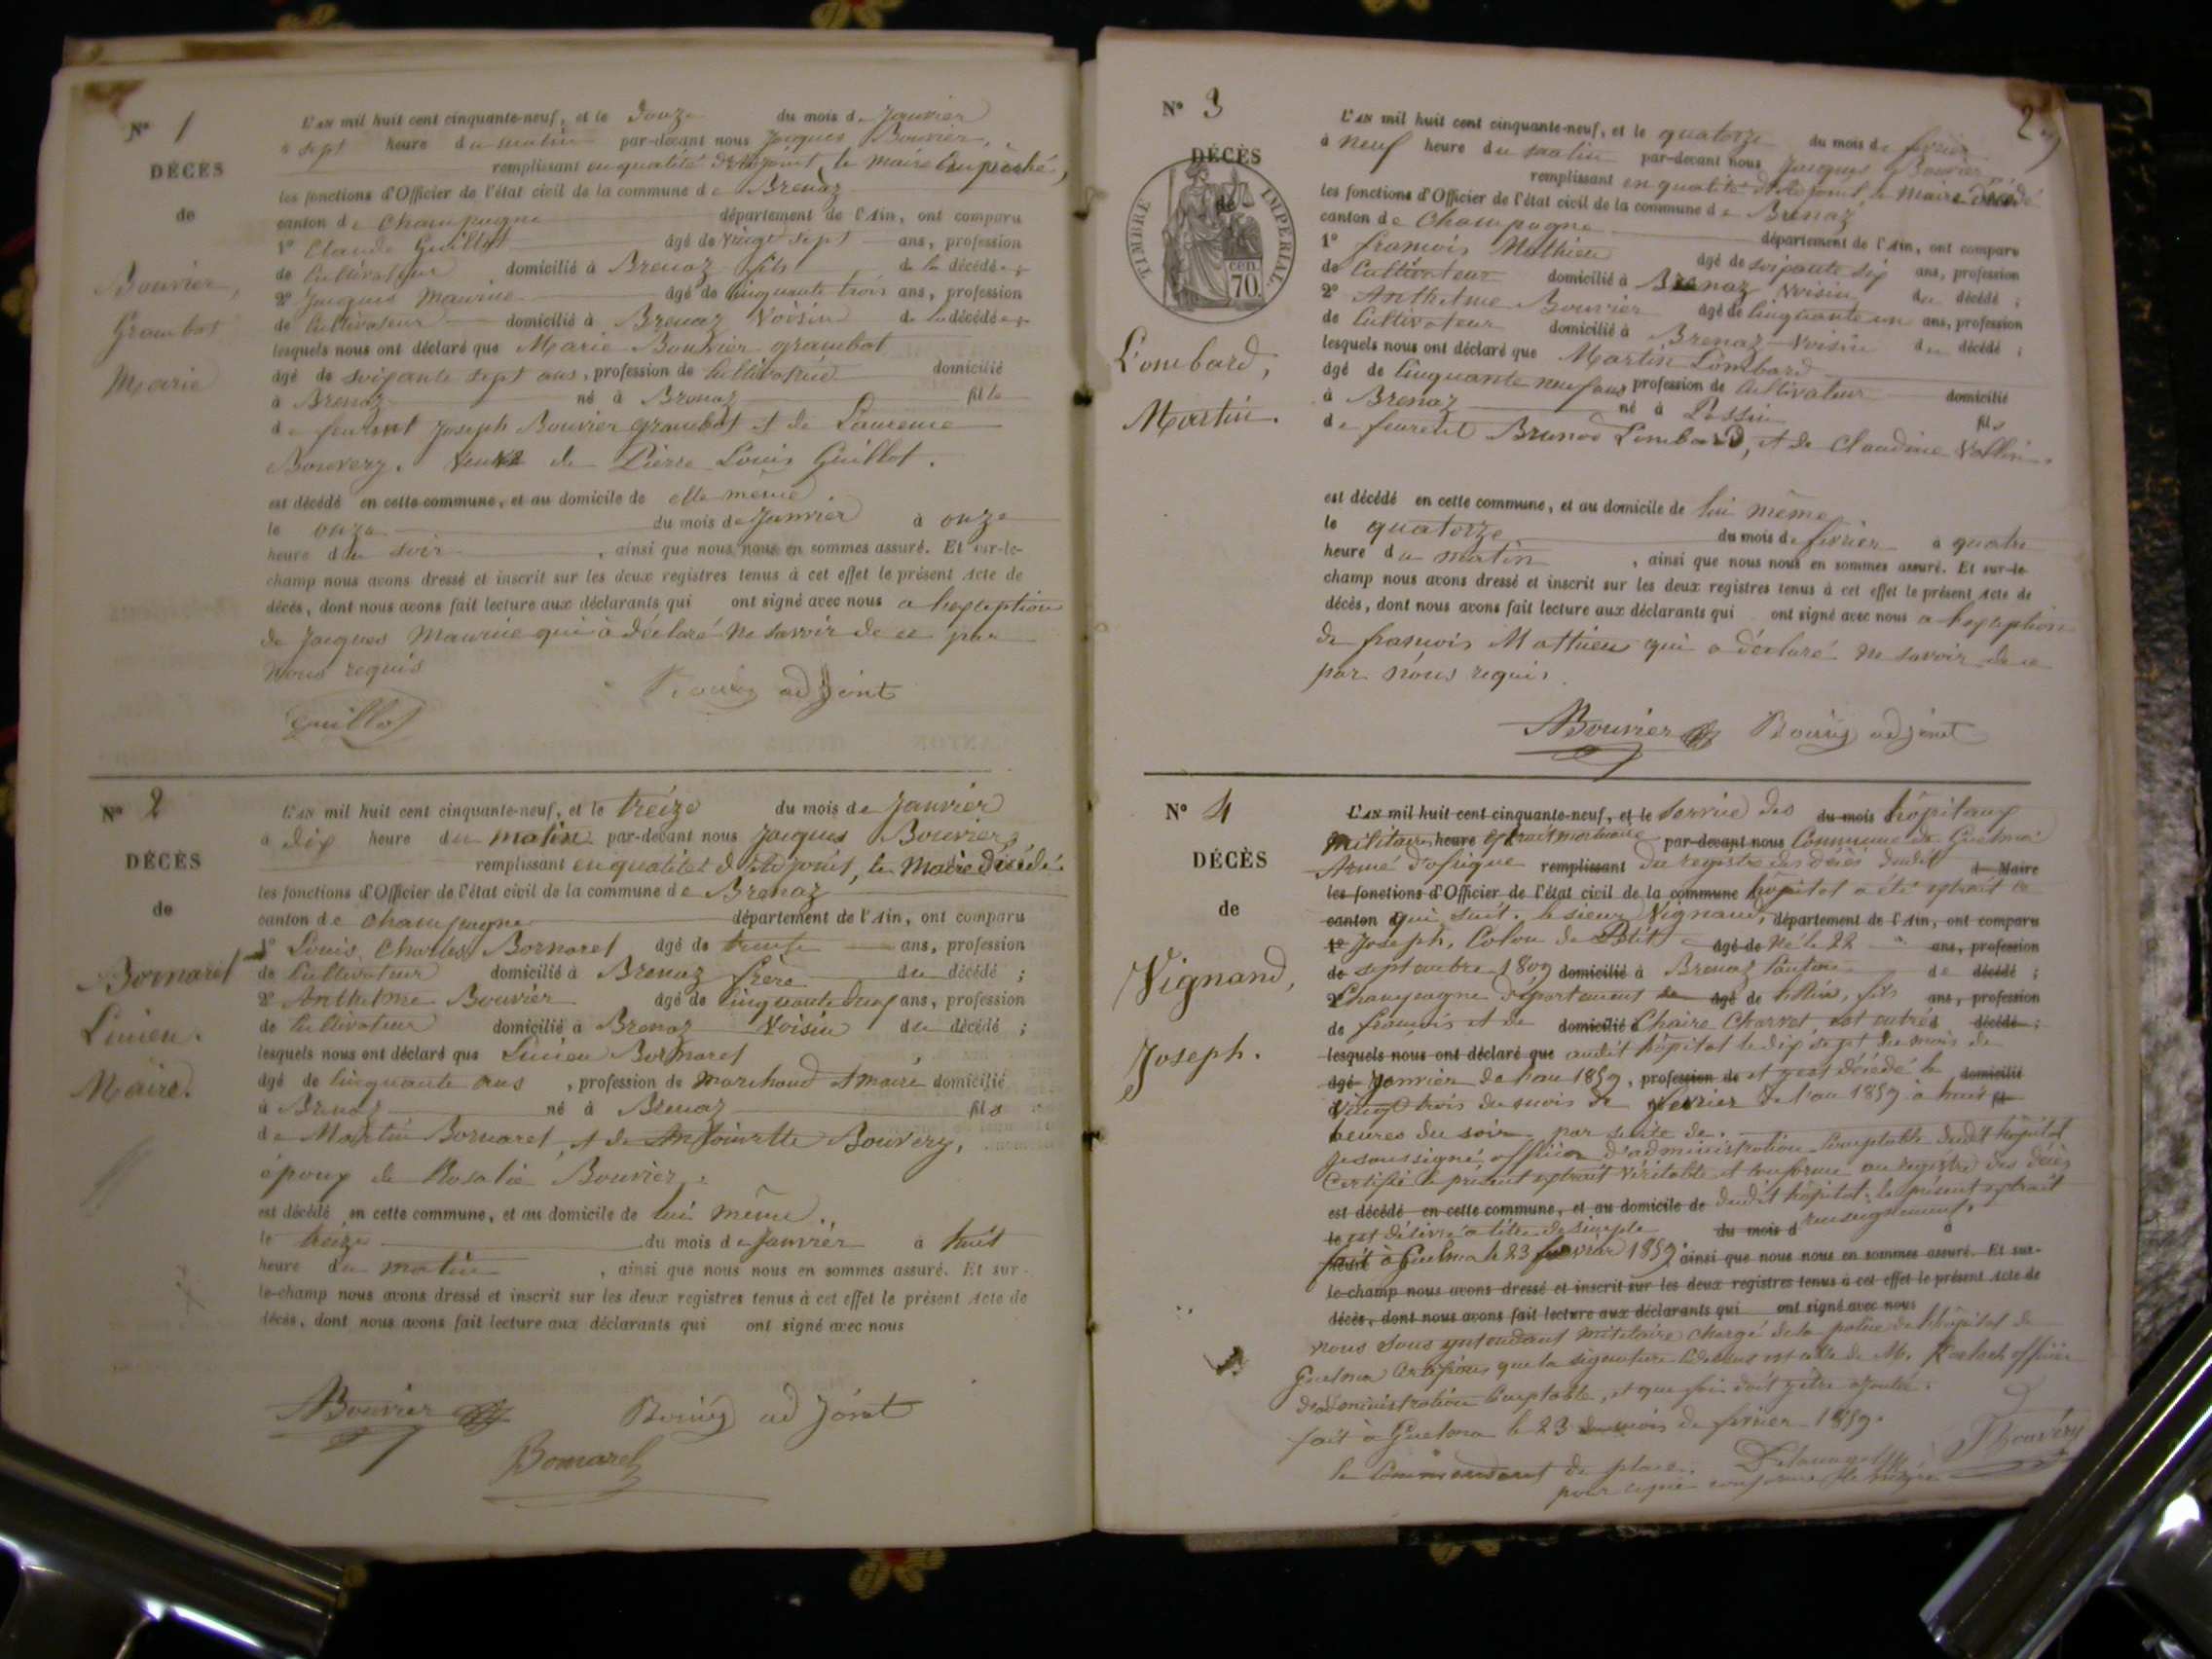 N° 1
DÉCÈS
de
Bouvier,
Grambot
Marie
L'AN mil huit cent cinquante-neuf, et le Douze du mois de Janvier
à sept heure du matin par-devant nous Jacques Bouvier,
remplissant en qualité d'adjoint le maire Empêché,
les fonctions d'Officier de l'état civil de la commune de Brenaz
canton de Champagne département de l'Ain, ont comparu
1° Claude Guillot âgé de vingt sept ans, profession
de Cultivateur domicilié à Brenaz fils de la décédée ;
2° Jacques Maurine âgé de Cinquante trois ans, profession
de Cultivateur domicilié à Brenaz Voisin de la décédée ;
lesquels nous ont déclaré que Marie Bouvier grambot
âgé de soixante sept ans, profession de Cultivatrice domicilié
à Brenaz né à Brenaz fille
de feurent Joseph Bouvier grambot et de Laurence
Bouvery. Veuve de Pierre Louis Guillot.
est décédé en cette commune, et au domicile de elle même
le onze du mois de Janvier à onze
heure du soir , ainsi que nous nous en sommes assuré. Et sur-le-
champ nous avons dressé et inscrit sur les deux registres tenus à cet effet le présent Acte de
décès, dont nous avons fait lecture aux déclarants qui ont signé avec nous a l'exception
de Jacques Maurine qui à déclaré ne savoir de ce par
nous requis
adjoint
Guillot
N° 2
DÉCÈS
de
Bornarel
Lucien.
Maire.
L'AN mil huit cent cinquante-neuf, et le treize du mois de Janvier
à dix heure du matin par-devant nous Jacques Bouvier,
remplissant en qualitet d'Adjoint, le Maire Décédé
les fonctions d'Officier de l'état civil de la commune de Brenaz
canton de Champagne département de l'Ain, ont comparu
1° Louis, Charles, Bornarel âgé de trente ans, profession
de Cultivateur domicilié à Brenaz frère du décédé ;
2° Anthelme Bouvier âgé de Cinquante deux ans, profession
de Cultivateur domicilié à Brenaz Voisin du décédé ;
lesquels nous ont déclaré que Lucien Bornarel
âgé de Cinquante ans , profession de Marchand et maire domicilié
à Brenaz né à Brenaz fils
de Martin Bornarel, et de Antoinette Bouvery,
époux de Rosalie Bouvier.
est décédé en cette commune, et au domicile de lui même
le treize du mois de Janvier à huit
heure du matin , ainsi que nous nous en sommes assuré. Et sur-
le-champ nous avons dressé et inscrit sur les deux registres tenus à cet effet le présent Acte de
décès, dont nous avons fait lecture aux déclarants qui ont signé avec nous
ABouvier adjoint
Bornarel
2
N° 3
DÉCÈS
de
TIMBRE IMPERIAL.
cen.
70
Lombard,
Martin.
L'AN mil huit cent cinquante-neuf, et le quatorze du mois de février
à Neuf heure du matin par-devant nous Jacques Bouvier,
remplissant en qualité d'adjoint, le Maire Décédé
les fonctions d'Officier de l'état civil de la commune de Brenaz
canton de Champagne département de l'Ain, ont comparu
1° françois Mathieu âgé de soixante six ans, profession
de Cultivateur domicilié à Brenaz Voisin du décédé ;
2° Anthelme Bouvier âgé de Cinquante un ans, profession
de Cultivateur domicilié à Brenaz Voisin du décédé ;
lesquels nous ont déclaré que Martin Lombard
âgé de Cinquante neuf ans profession de Cultivateur domicilié
à Brenaz né à fils
de feurent Lombard, et de Claudine Vallin.
est décédé en cette commune, et au domicile de lui même
le quatorze du mois de février à quatre
heure du matin , ainsi que nous nous en sommes assuré. Et sur-le-
champ nous avons dressé et inscrit sur les deux registres tenus à cet effet le présent Acte de
décès, dont nous avons fait lecture aux déclarants qui ont signé avec nous a l'exception
de françois Mathieu qui a déclaré ne savoir de ce
par nous requis.
ABouvier adjoint
N° 4
DÉCÈS
de
Vignand,
Joseph.
L'AN mil huit cent cinquante-neuf, et le Service des du mois hôpitaux
Militaires heure Extrait mortuaire par-devant nous Commune de Guelma
Armé d'afrique remplissant du registre des décès dudit d Maire
les fonctions d'Officier de l'état civil de la commune hôpital a été extrait ce
canton qui suit. le sieur Vignand, département de l'Ain, ont comparu
1° Joseph, Colon de Petit âgé de Né le 22 ans, profession
de septembre 1809 domicilié à Brenaz Canton de décédé ;
2° Champagne Département de âgé de l'Ain, fils ans, profession
de françois et de domicilié Claire Charvet, est entrés décédé ;
lesquels nous ont déclaré que audit hôpital le dix sept du mois de
âgé Janvier de l'an 1859, profession de et y est décédé le domicilié
à Vingt trois du mois de février de l'an 1859 à huit fil
heures du soir par suite de.
Je soussigné, officier d'administration Comptable dudit hôpital
Certifie le présent extrait Véritable et conforme au registre des décès
est décédé en cette commune, et au domicile de dudit hôpital. le présent extrait
le est délivré a titre de simple du mois d renseignement. à
heure fait à Guelma le 23 fevrier 1859. ainsi que nous nous en sommes assuré. Et sur-
le-champ nous avons dressé et inscrit sur les deux registres tenus à cet effet le présent Acte de
décès, dont nous avons fait lecture aux déclarants qui ont signé avec nous
nous Sous intendant Militaire chargé de la police de l'hôpital de
Guelma Certifions que la signature Cidessus est celle de M. officier
d'administration Comptable, et que foi doit y être ajoutée.
fait à Guelma le 23 du mois de février 1859.
le Commandant de place.
pour copie conforme le maire
JBouvery